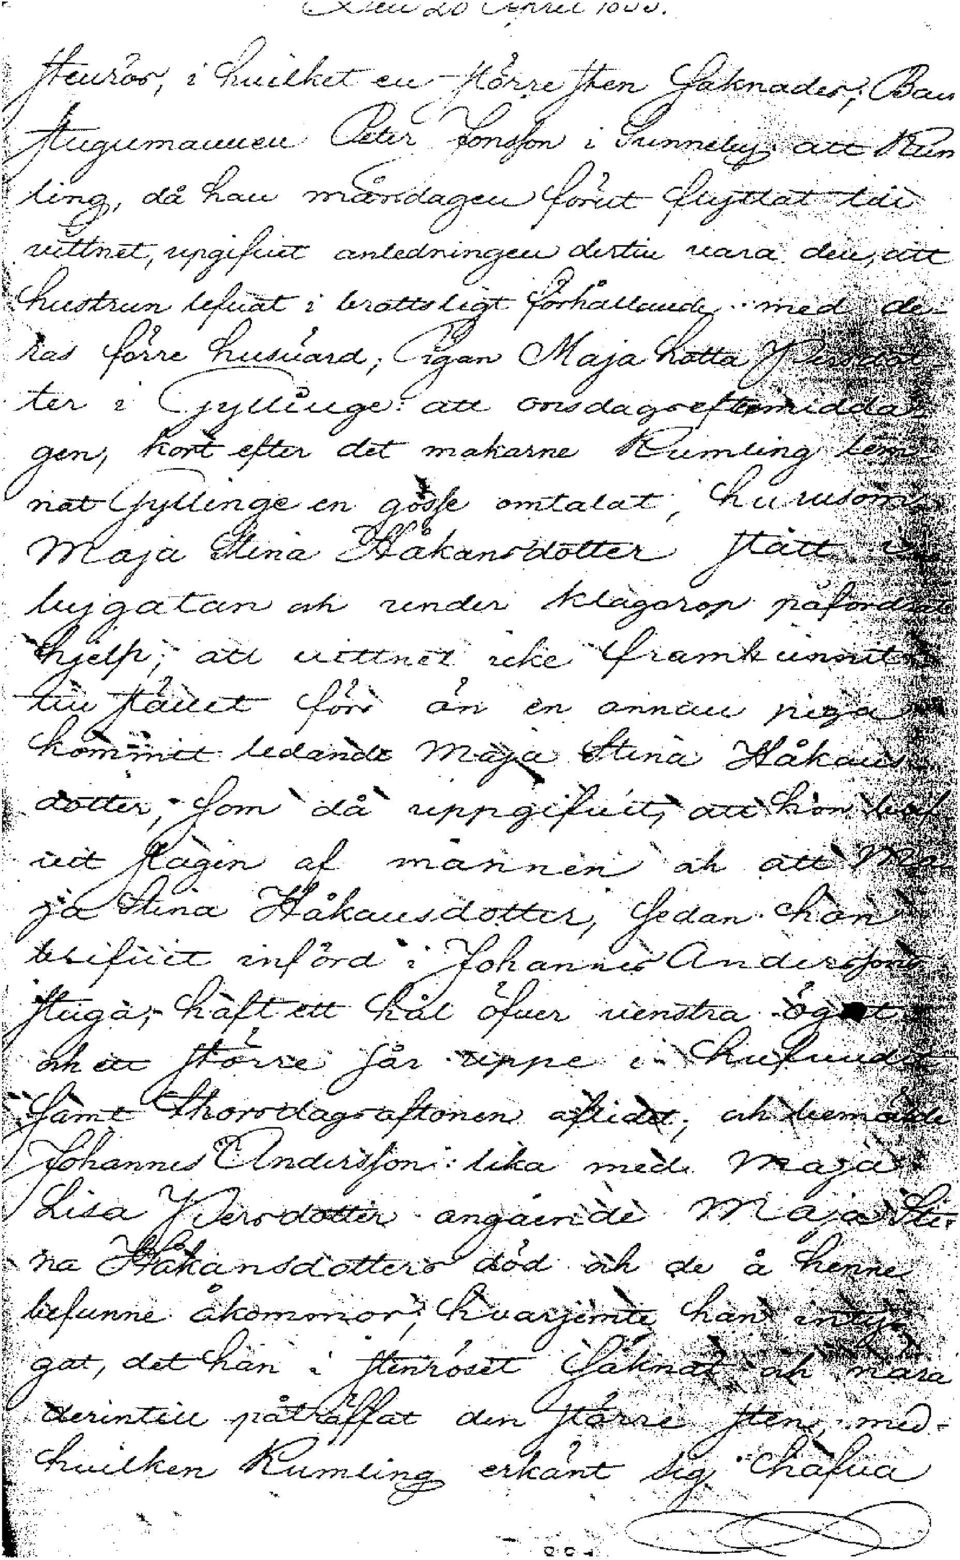 Den 20 April
stenrös, i hvilket en större sten saknades; Ban
stugumannen Peter Jonsson i Sunneby: att Rum
ling, då han måndagen förut flyttat till
vittnet, upgifvit anledningen dertill vara den, att
hustrun lefvat i brottsligt förhållande med de
ras förre husvärd; Pigan Maja Lotta Persdot
ter i Gyllinge: att onsdagseftermidda
gen, kort efter det makarne Rumling lem
nat Gyllinge en gosse omtalat, hurusom
Maja Stina Håkansdotter stått i
bygatan och under klagorop påfordrat
hjelp; att vittnet icke framkunnit
till stället förr än en annan piga
kommit ledande Maja Stina Håkans
dotter, som då uppgifvit, att hon blif
vit slagen af mannen och att Ma
ja Stina Håkansdotter, sedan hon
blifvit införd i Johannes Anderssons
stuga, haft ett hål öfver venstra ögat
och ett större sår uppe i hufvudet
samt Thorsdagsaftonen aflidit; och bemälde
Johannes Andersson: lika med Maja
Lisa Persdotter angående Maja Sti
na Håkansdotters död och de å henne
befunne åkommor; hvarjemte han inty
gat, det han i stenröset saknat och nära
derintill påträffat den större sten, med
hvilken Rumling erkänt sig hafva